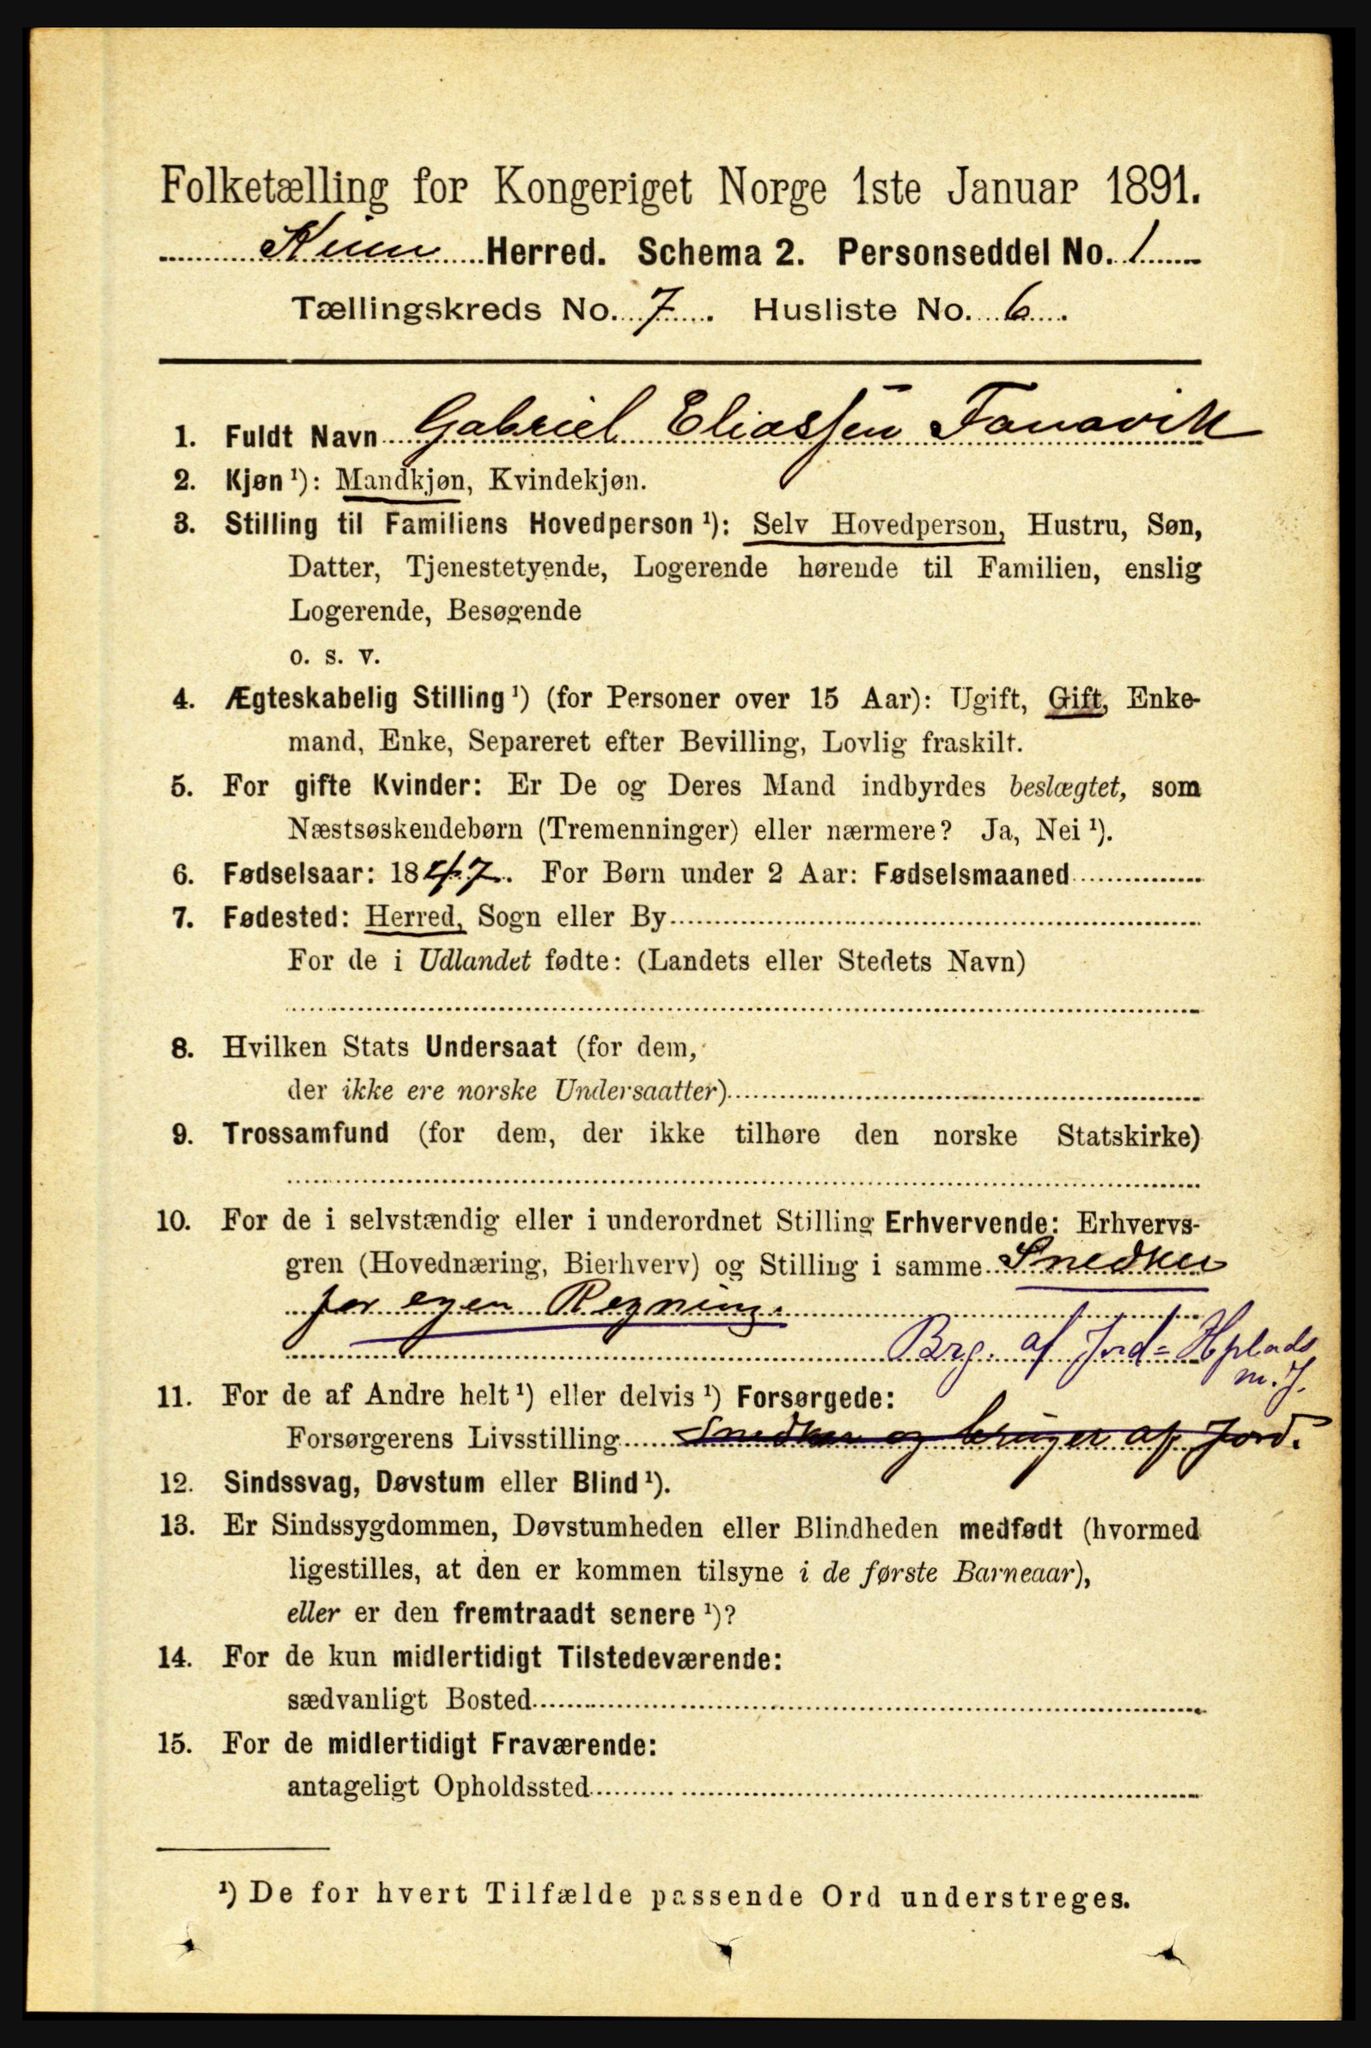 Folketælling for Kongeriget Norge 1ste Januar 1891.
Kinn Herred. Schema 2. Personseddel No. 1
Tællingskreds No. 7. Husliste No. 6.
1. Fuldt Navn Gabriel Eliassen Fanavik
2. Kjøn ¹): Mandkjøn, Kvindekjøn.
3. Stilling til Familiens Hovedperson ¹): Selv Hovedperson, Hustru, Søn,
Datter, Tjenestetyende, Logerende hørende til Familien, enslig
Logerende, Besøgende
o. s. v.
4. Ægteskabelig Stilling ¹) (for Personer over 15 Aar): Ugift, Gift, Enke-
mand, Enke, Separeret efter Bevilling, Lovlig fraskilt.
5. For gifte Kvinder: Er De og Deres Mand indbyrdes beslægtet, som
Næstsøskendebørn (Tremenninger) eller nærmere? Ja, Nei ¹).
6. Fødselsaar: 1847. For Børn under 2 Aar: Fødselsmaaned
7. Fødested: Herred, Sogn eller By
For de i Udlandet fødte: (Landets eller Stedets Navn)
8. Hvilken Stats Undersaat (for dem,
der ikke ere norske Undersaatter)
9. Trossamfund (for dem, der ikke tilhøre den norske Statskirke)
10. For de i selvstændig eller i underordnet Stilling Erhvervende: Erhvervs-
gren (Hovednæring, Bierhverv) og Stilling i samme Snedker
for egen Regning.
Brg. af Jord = Hplads
m. J.
11. For de af Andre helt ¹) eller delvis ¹) Forsørgede:
Forsørgerens Livsstilling Snedker og bruger af Jord.
12. Sindssvag, Døvstum eller Blind ¹).
13. Er Sindssygdommen, Døvstumheden eller Blindheden medfødt (hvormed
ligestilles, at den er kommen tilsyne i de første Barneaar),
eller er den fremtraadt senere ¹)?
14. For de kun midlertidigt Tilstedeværende:
sædvanligt Bosted
15. For de midlertidigt Fraværende:
antageligt Opholdssted
¹) De for hvert Tilfælde passende Ord understreges.